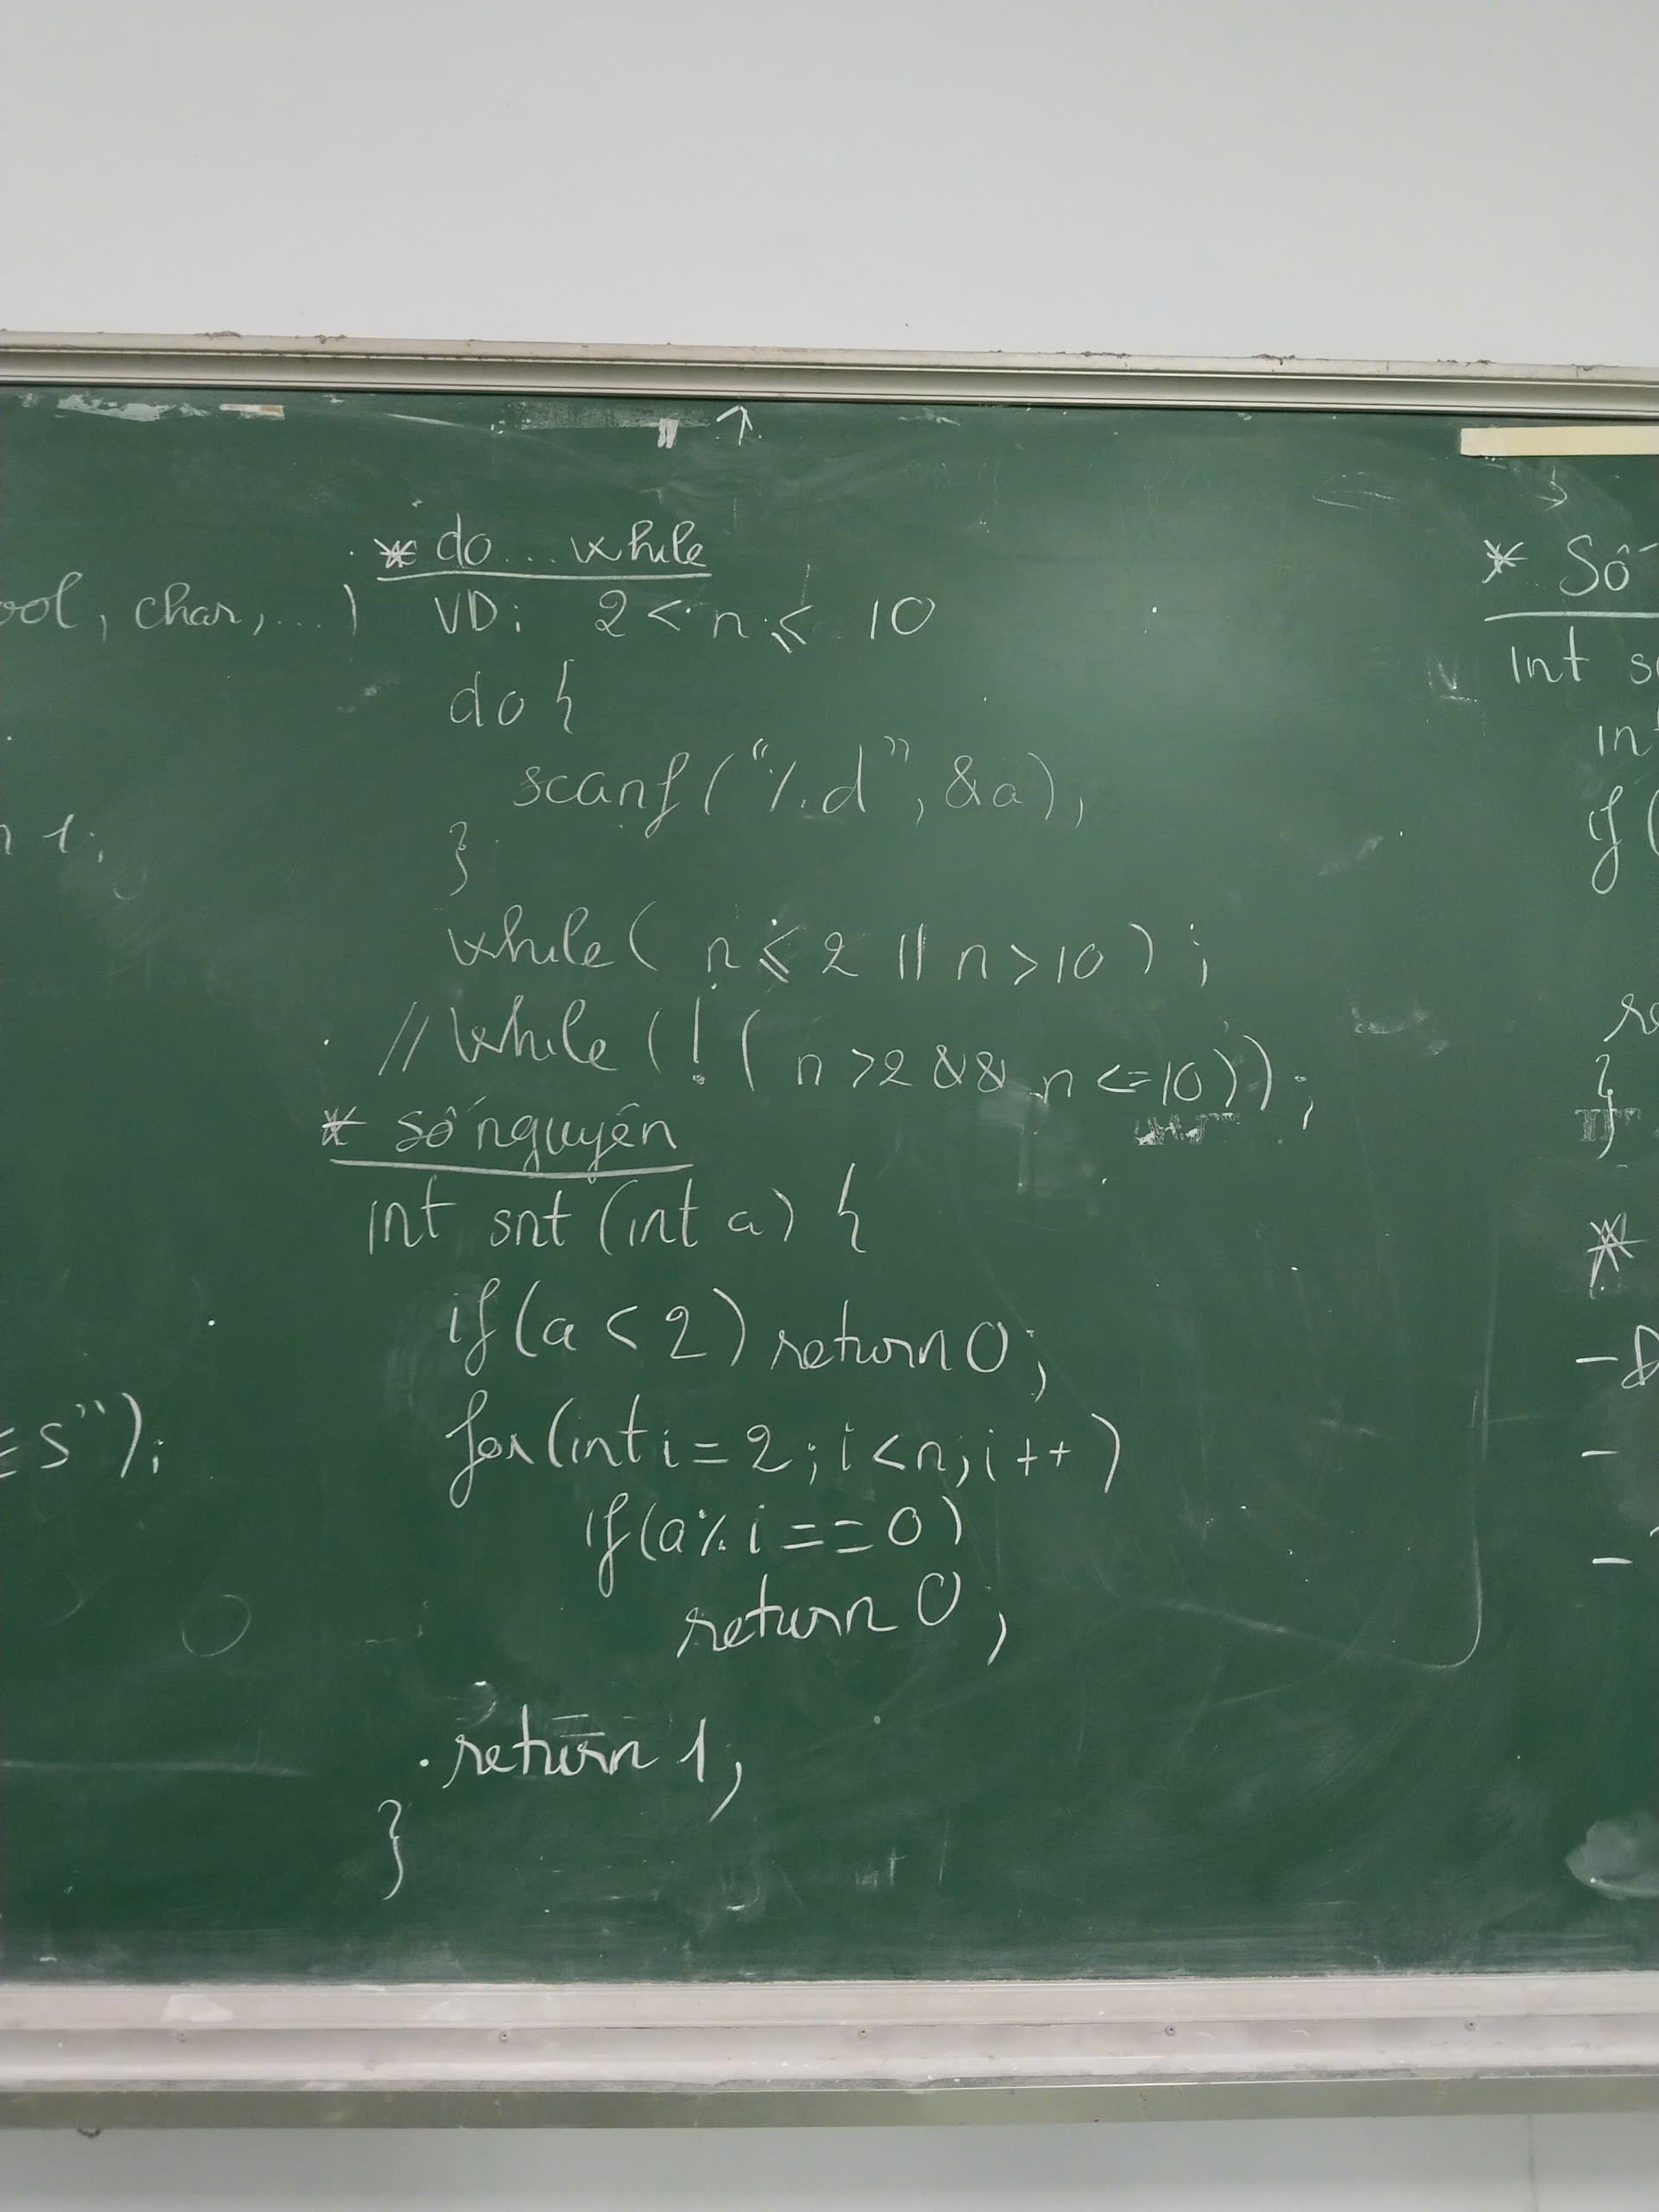 * do... while
ool, char, ...)
VD: 2 < n ≤ 10
do {
scanf("%d", &a);
}
while( n ≤ 2 || n > 10 ) ;
// while (!( n >2 && n <=10));
* số nguyên
int snt (int a) {
if(a < 2) return 0;
for(int i = 2; i < n; i ++ )
if(a % i == 0)
return 0;
return 1;
}
n 1;
s");
* Số
int s
int
if (
re
}
*
-
-